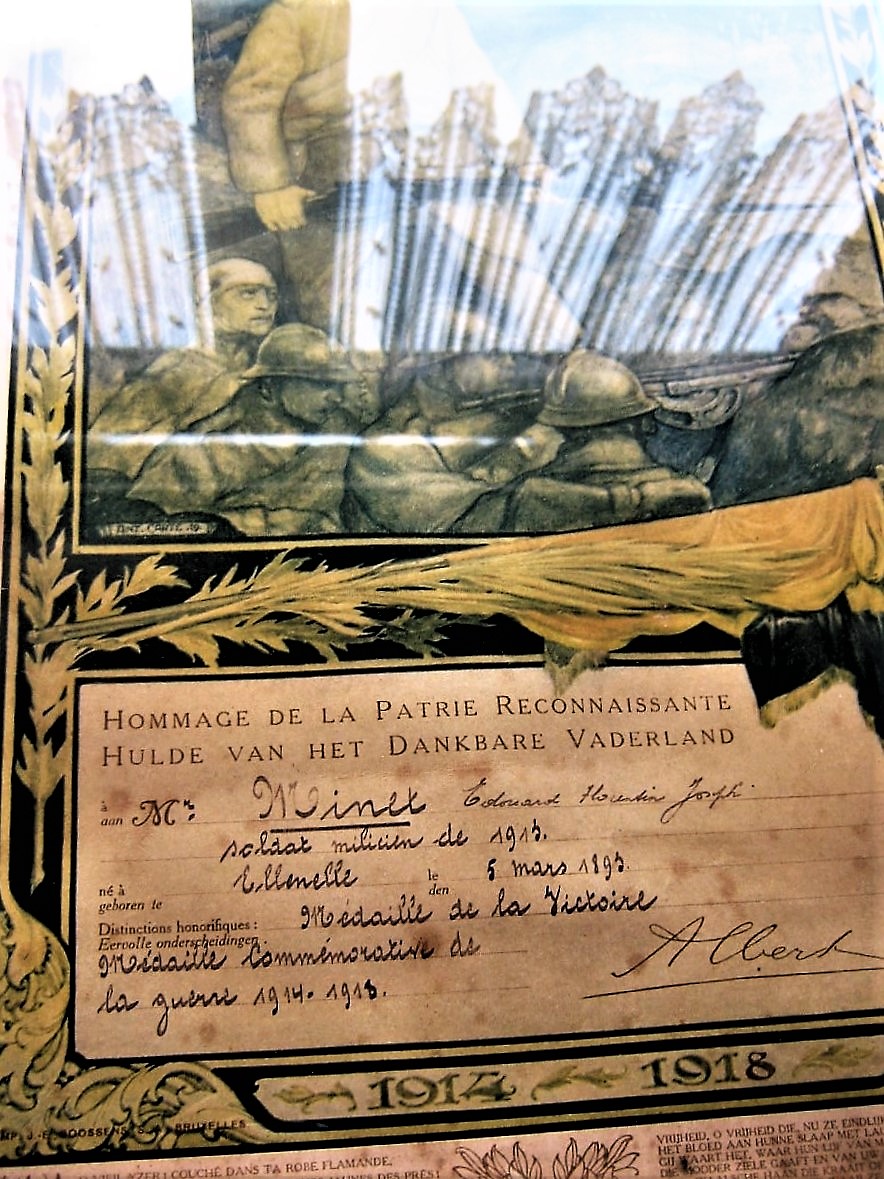 ANT. CARTE. 19
HOMMAGE DE LA PATRIE RECONNAISSANTE
HULDE VAN HET DANKBARE VADERLAND
à
aan Mr. Minet Edouard Florentin Joseph
soldat milicien de 1913.
né à
geboren te Ellenelle le
den 5 mars 1893.
Distinctions honorifiques : Médaille de la Victoire
Eervolle onderscheidingen :
Médaille Commémorative de
la guerre 1914-1918.
Albert
1914 1918
IMP. J.-E. GOOSSENS, S. A. BRUXELLES
COUCHÉ DANS TA ROBE FLAMANDE,
DES PRÉS!
VRIJHEID, O VRIJHEID DIE, NU ZE EINDLIJK
HET BLOED AAN HUNNE SLAAP MET
GIJ WAART HET, WAAR HUN LIJF VAN
DIE MODDER ZIELE GAAFT EN VAN UW
HAAN DIE KRAAIT